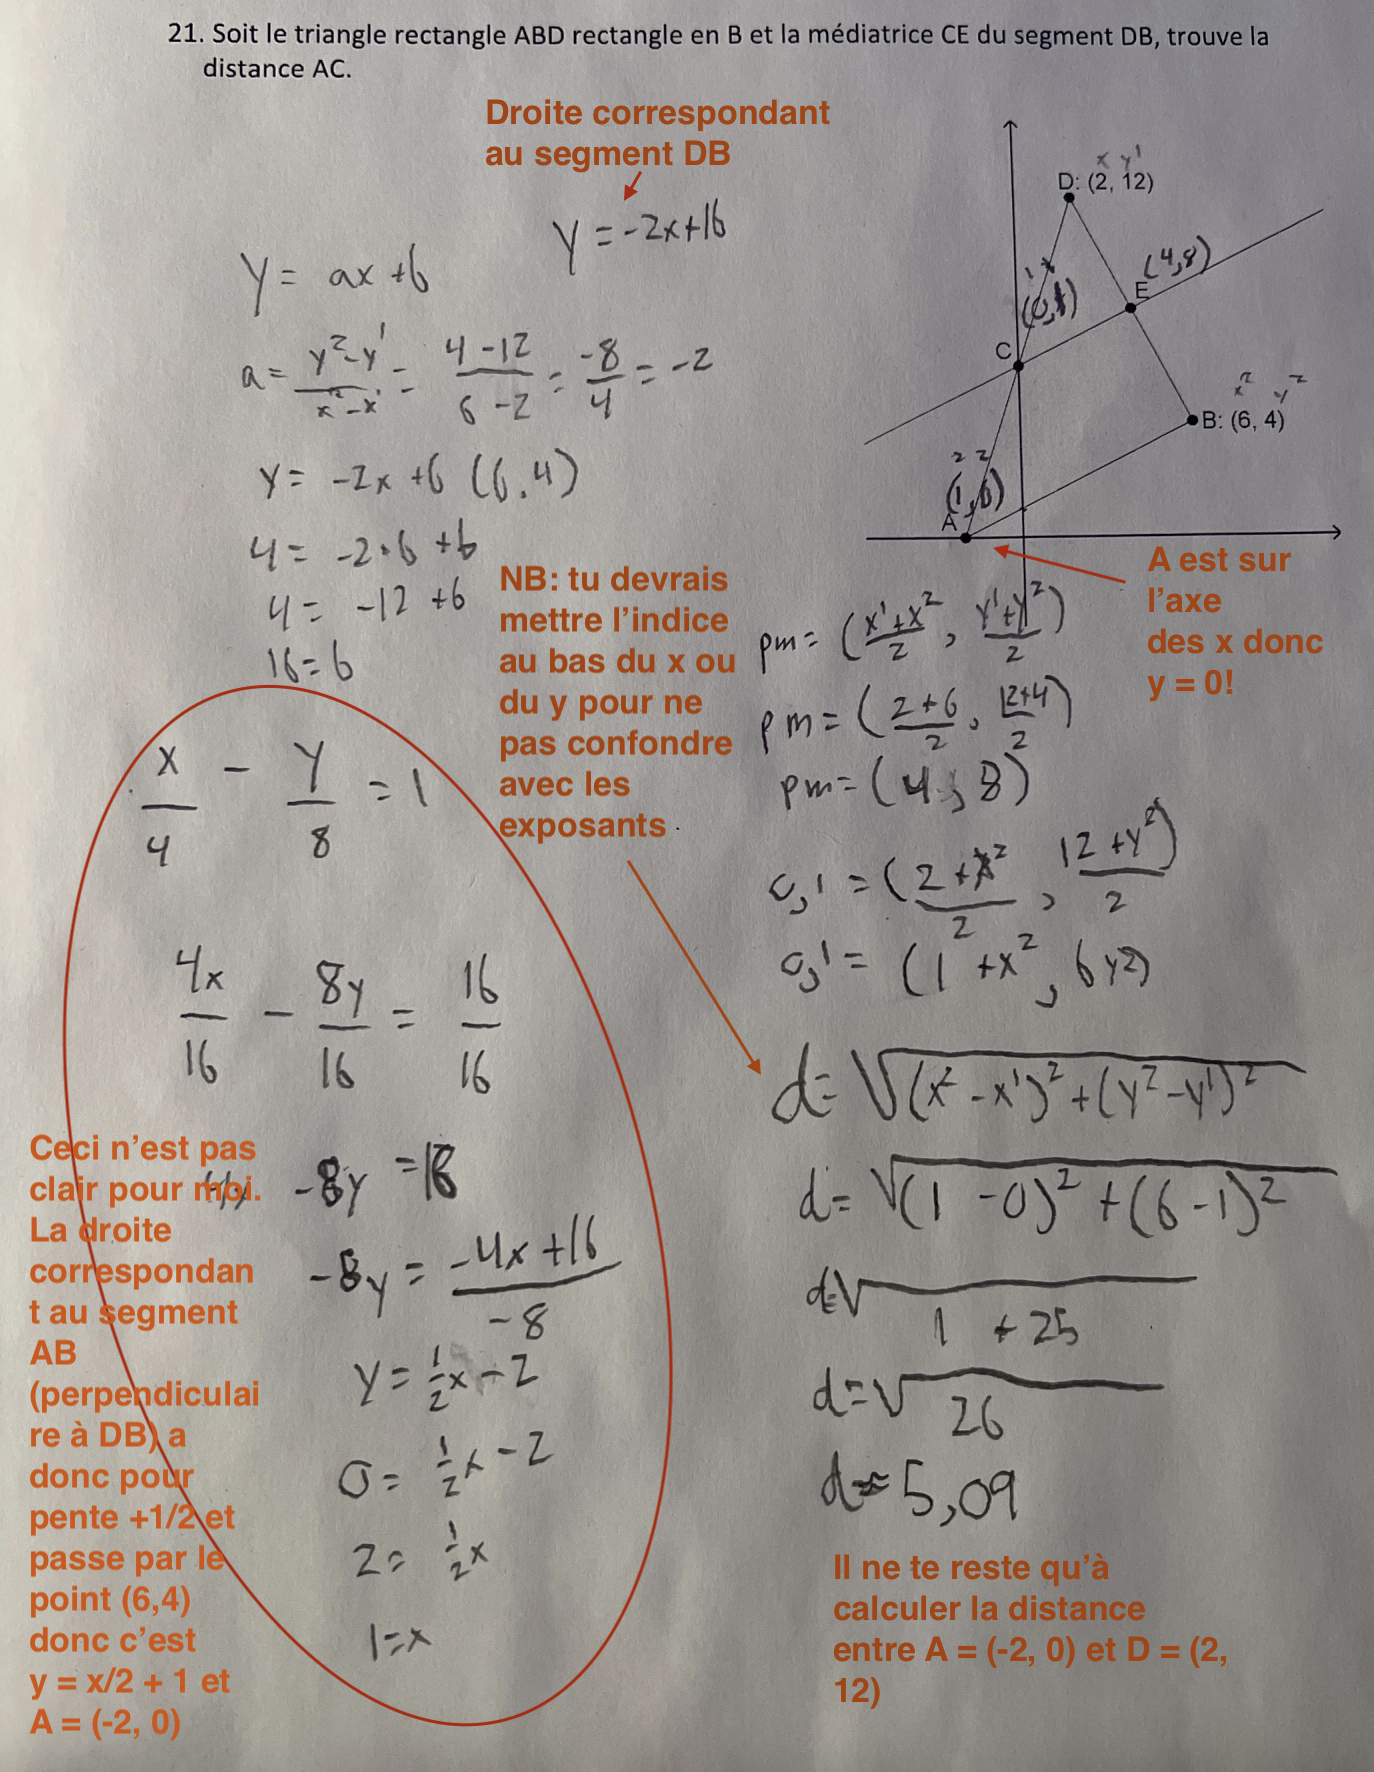 21. Soit le triangle rectangle ABD rectangle en B et la médiatrice CE du segment DB, trouve la
distance AC.
Droite correspondant
au segment DB
y = -2x+16
y = ax + b
a = y²-y¹ / x²-x¹ = 4-12 / 6-2 = -8/4 = -2
y = -2x + b (6,4)
4 = -2·6 + b
4 = -12 + b
16 = b
x/4 - y/8 = 1
4x/16 - 8y/16 = 16/16
-8y = 16
-8y = -4x+16 / -8
y = 1/2x - 2
0 = 1/2x - 2
2 = 1/2x
1 = x
Ceci n'est pas
clair pour moi.
La droite
correspondan
t au segment
AB
(perpendiculai
re à DB) a
donc pour
pente +1/2 et
passe par le
point (6,4)
donc c'est
y = x/2 + 1 et
A = (-2, 0)
NB: tu devrais
mettre l'indice
au bas du x ou
du y pour ne
pas confondre
avec les
exposants
x y¹
D: (2, 12)
(4,8)
E
(0,1)
C
x² y²
B: (6, 4)
2 2
(1,6)
A
A est sur
l'axe
des x donc
y = 0!
pm = (x¹+x²/2, y¹+y²/2)
pm = (2+6/2, 12+4/2)
pm = (4, 8)
0,1 = (2+x²/2, 12+y²/2)
0,1 = (1+x², 6y2)
d = √(x²-x¹)²+(y²-y¹)²
d = √(1-0)²+(6-1)²
d = √1 + 25
d = √26
d = 5,09
Il ne te reste qu'à
calculer la distance
entre A = (-2, 0) et D = (2,
12)